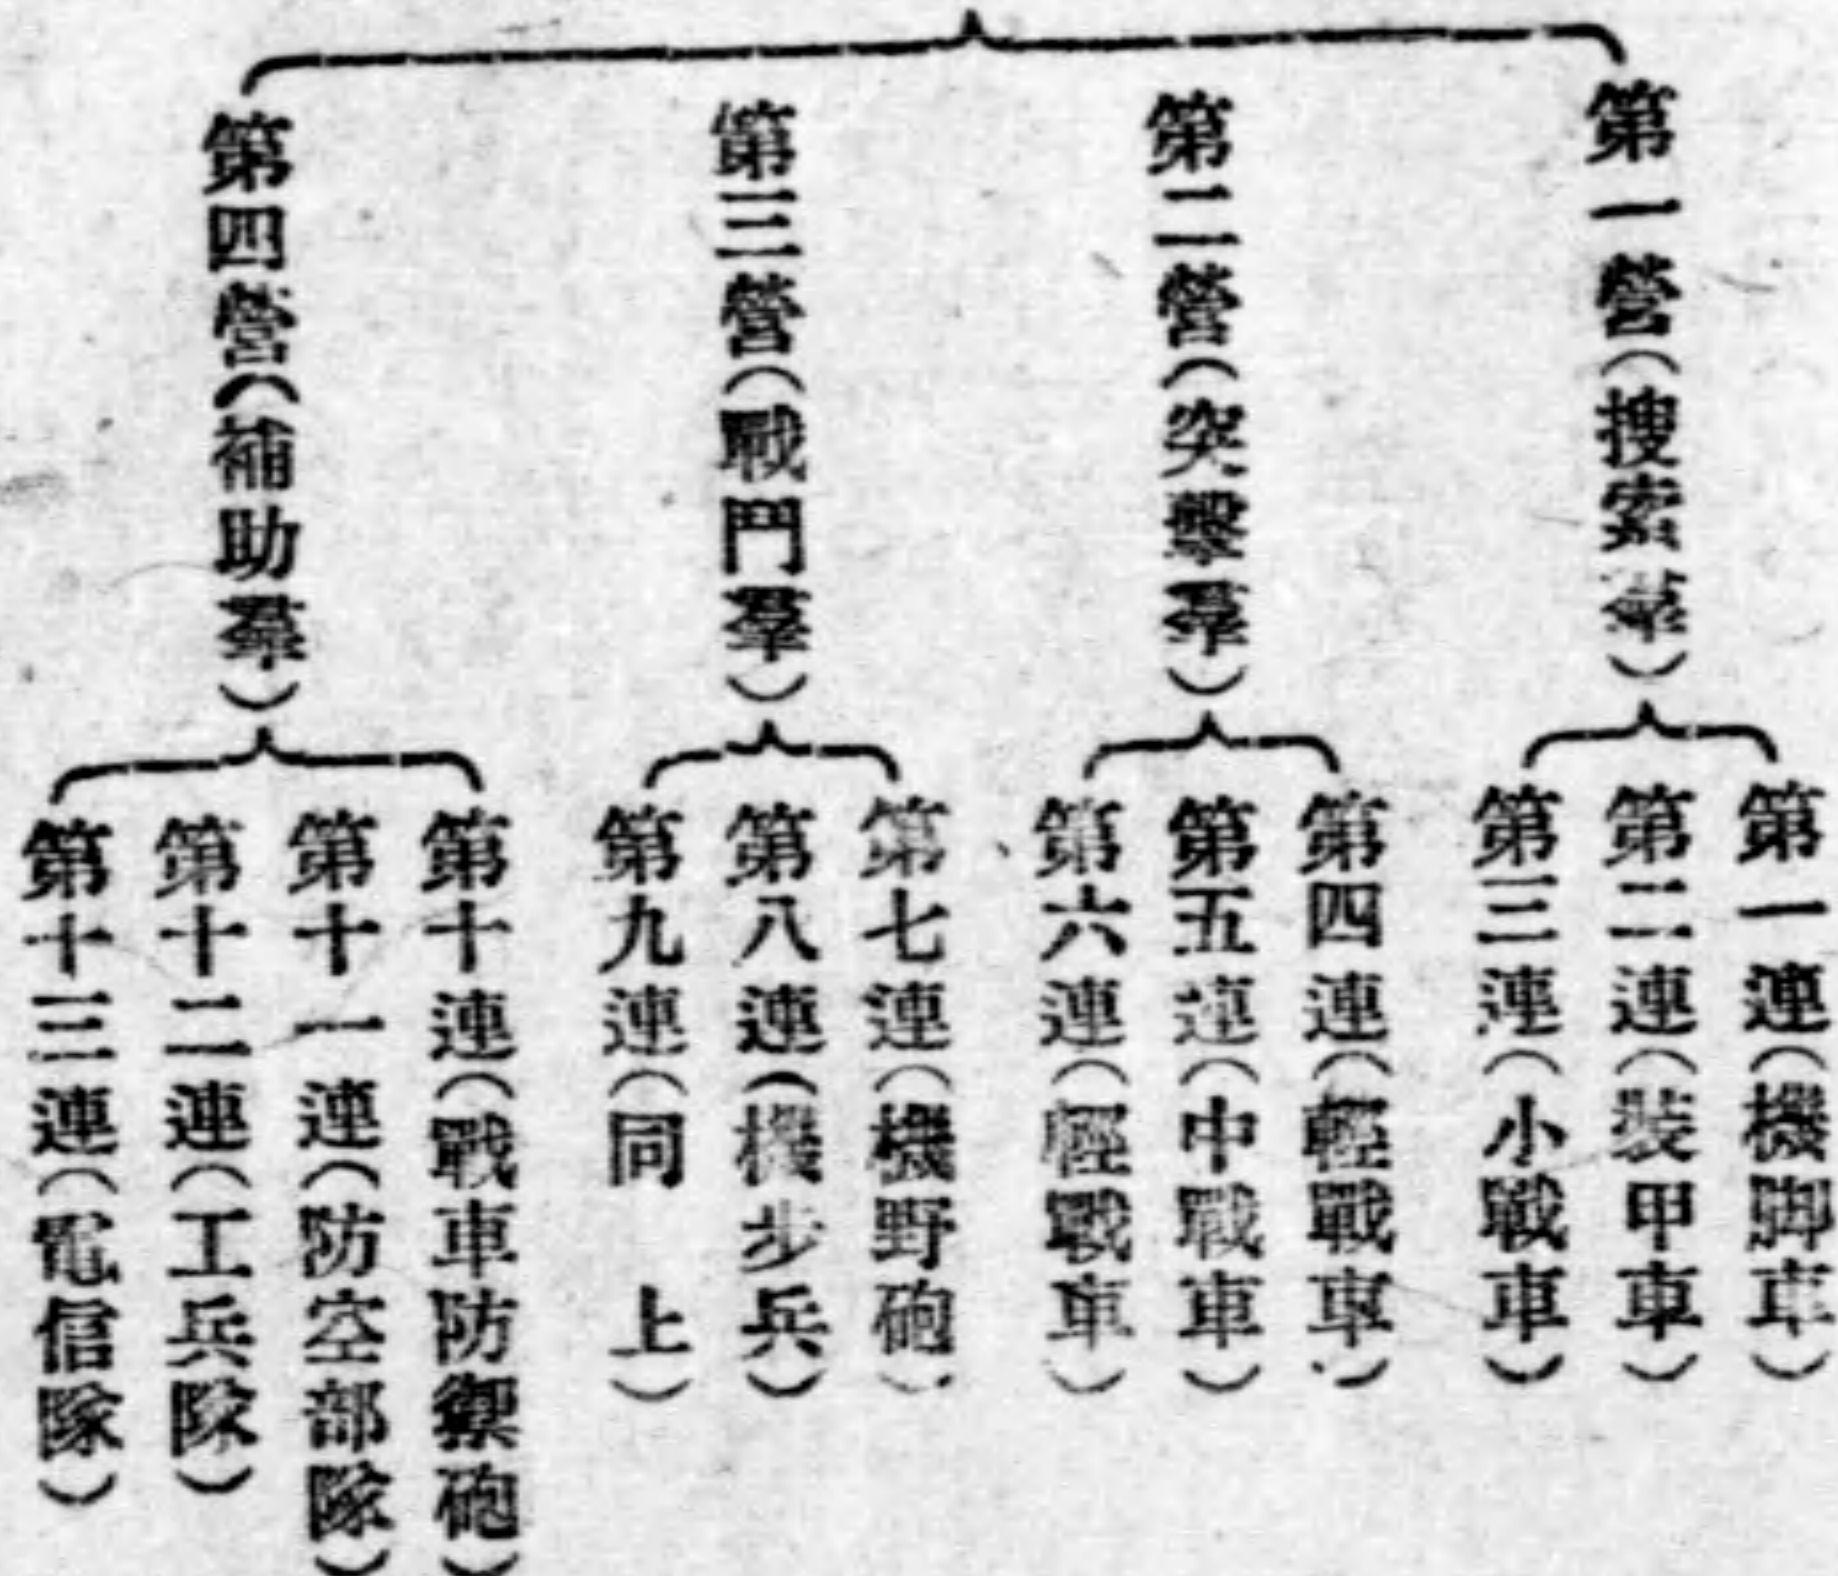 第一營（搜索羣）
第一連（機脚車）
第二連（裝甲車）
第三連（小戰車）
第二營（突擊羣）
第四連（輕戰車）
第五連（中戰車）
第六連（輕戰車）
第三營（戰鬥羣）
第七連（機野砲）
第八連（機步兵）
第九連（同　上）
第四營（補助羣）
第十連（戰車防禦砲）
第十一連（防空部隊）
第十二連（工兵隊）
第十三連（電信隊）